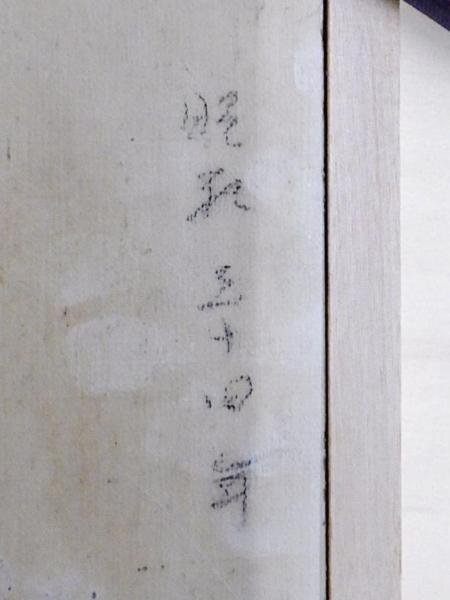 昭和三十四年